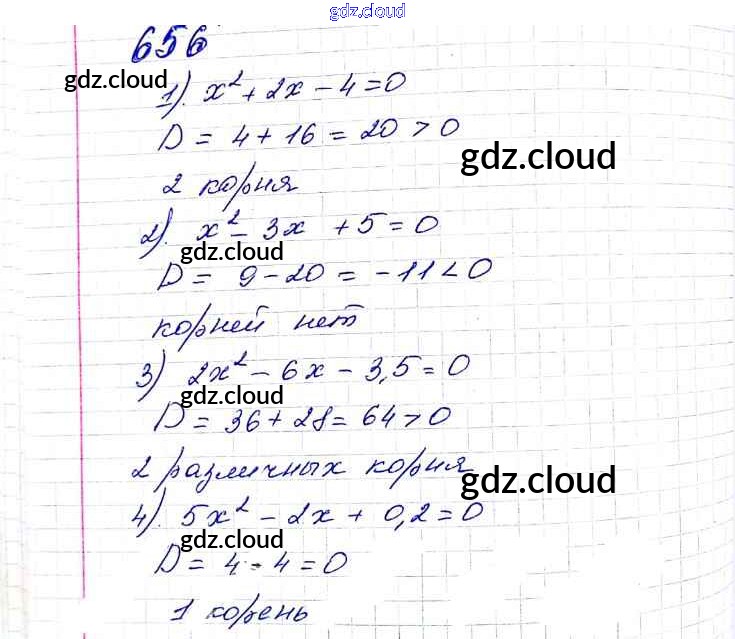 gdz.cloud
656
gdz.cloud
1). x² + 2x - 4 = 0
D = 4 + 16 = 20 > 0
gdz.cloud
2 корня
2). x² - 3x + 5 = 0
gdz.cloud
D = 9 - 20 = -11 < 0
корней нет
3) 2x² - 6x - 3,5 = 0
gdz.cloud
D = 36 + 28 = 64 > 0
2 различных корня
gdz.cloud
4). 5x² - 2x + 0,2 = 0
gdz.cloud
D = 4 - 4 = 0
1 корень